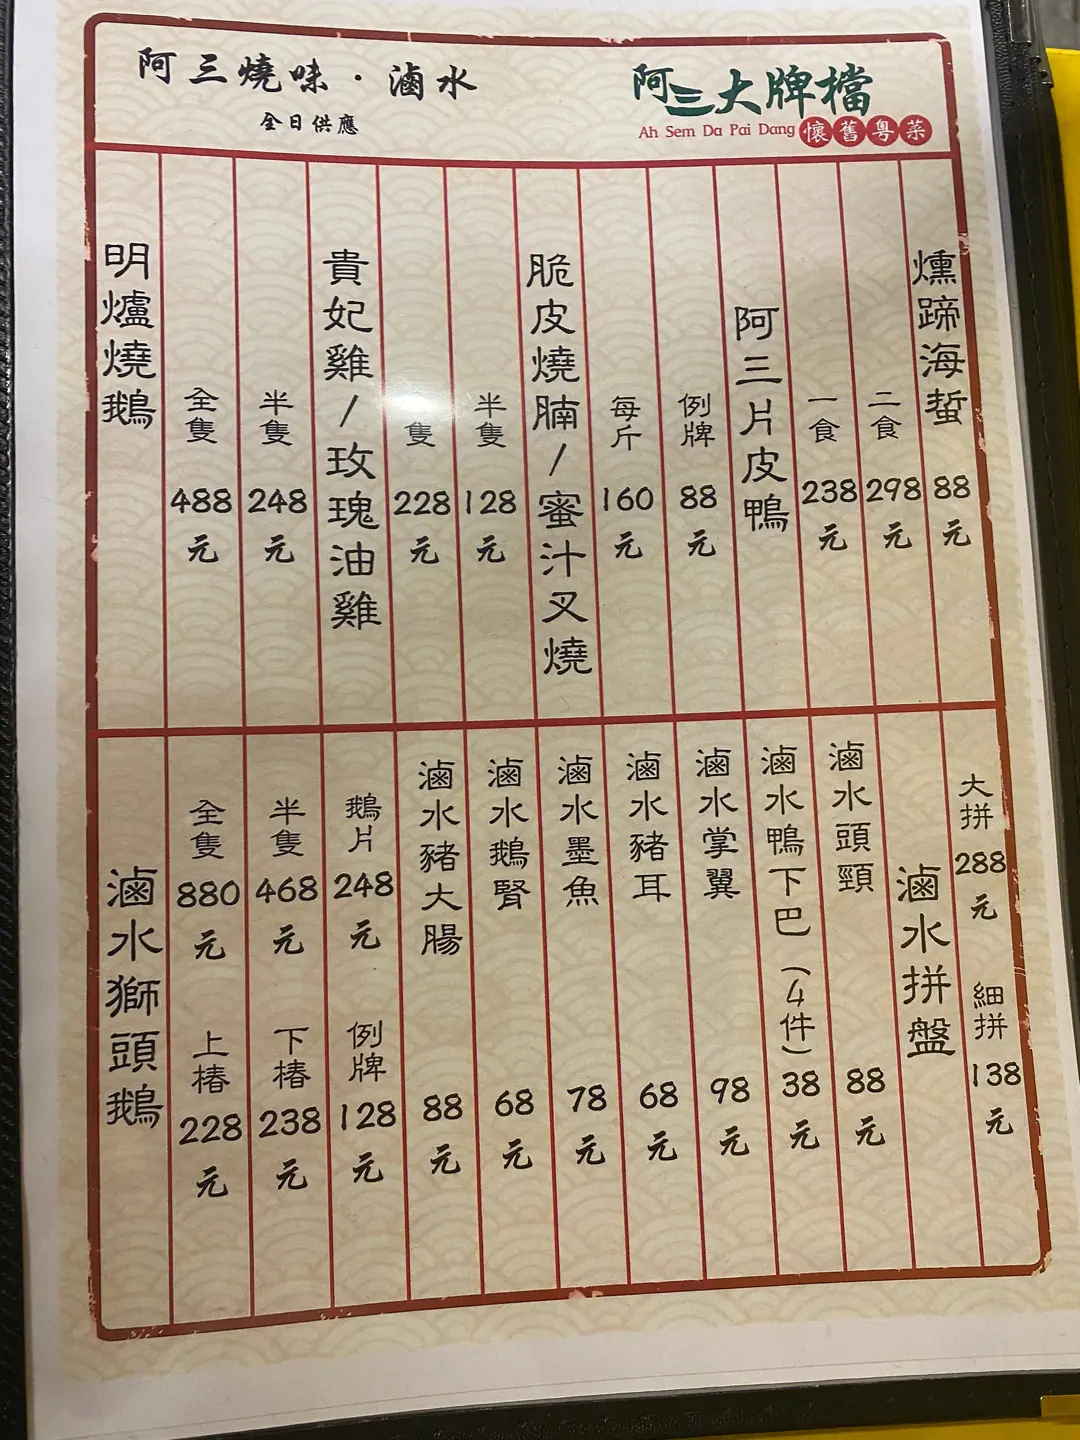 阿三燒味·滷水
全日供應
阿三大牌檔
Ah Sem Da Pai Dang 懷舊粵菜
明爐燒鵝
全隻 488元
半隻 248元
貴妃雞/玫瑰油雞
隻 228元
半隻 128元
脆皮燒腩/蜜汁叉燒
每斤 160元
例牌 88元
阿三片皮鴨
一食 238元
二食 298元
燻蹄海蜇 88元
滷水獅頭鵝
全隻 880元 上樁 228元
半隻 468元 下樁 238元
鵝片 248元 例牌 128元
滷水豬大腸 88元
滷水鵝腎 68元
滷水墨魚 78元
滷水豬耳 68元
滷水掌翼 98元
滷水鴨下巴(4件) 38元
滷水頭頸 88元
滷水拼盤
大拼 288元 細拼 138元